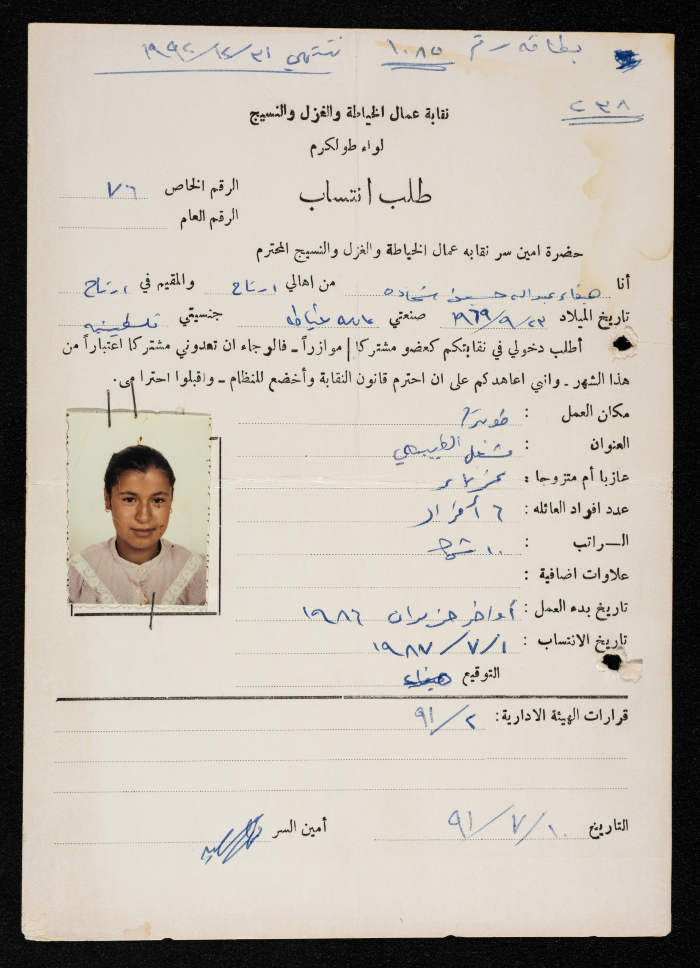 بطاقه رقم ١٠٨٥ تنتهي ١٩٩٢/١٢/٣١
٢٣٨
نقابة عمال الخياطة والغزل والنسيج
لواء طولكرم
طلب انتساب
الرقم الخاص ٧٦
الرقم العام
حضرة امين سر نقابه عمال الخياطة والغزل والنسيج المحترم
أنا هيفاء عبدالله حسين شحاده من اهالي ارتاح والمقيم في ارتاح
تاريخ الميلاد ١٩٦٩/٩/٢٣ صنعتي عامله خياطه جنسيتي فلسطينيه
أطلب دخولي في نقابتكم كعضو مشتركا | موازراً ـ فالرجاء ان تعدوني مشتركا اعتباراً من
هذا الشهر ـ واني اعاهدكم على ان احترم قانون النقابة وأخضع للنظام ـ واقبلوا احترامي.
مكان العمل :
العنوان : مشغل
عازبا أم متزوجا : عزباء
عدد افراد العائله : ٦ أفراد
الـــراتب :
علاوات اضافية :
تاريخ بدء العمل : أواخر حزيران ١٩٨٦
تاريخ الانتساب : ١٩٨٧/٧/١
التوقيع هيفاء
قرارات الهيئة الادارية : ٩١/٢
التاريخ ٩١/٧/١٠ أمين السر